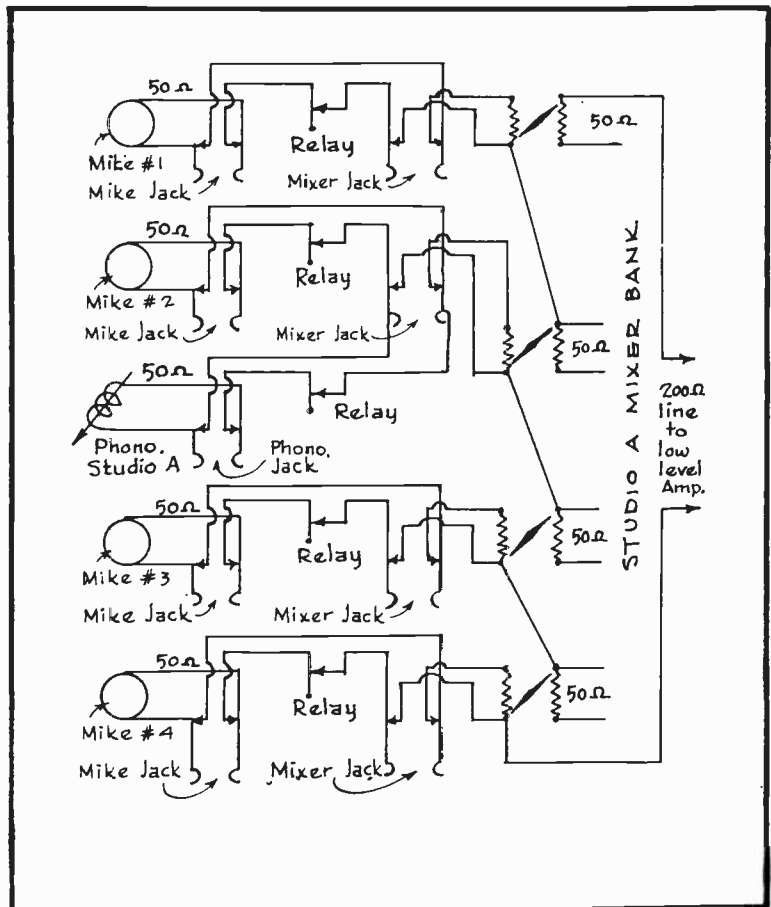 50Ω
Mike #1
Mike Jack
Relay
Mixer Jack
50Ω
50Ω
Mike #2
Mike Jack
Relay
Mixer Jack
50Ω
50Ω
Phono.
Studio A
Phono.
Jack
Relay
50Ω
Mike #3
Mike Jack
Relay
Mixer Jack
50Ω
50Ω
Mike #4
Mike Jack
Relay
Mixer Jack
50Ω
STUDIO A MIXER BANK
200Ω
line
to
low
level
Amp.